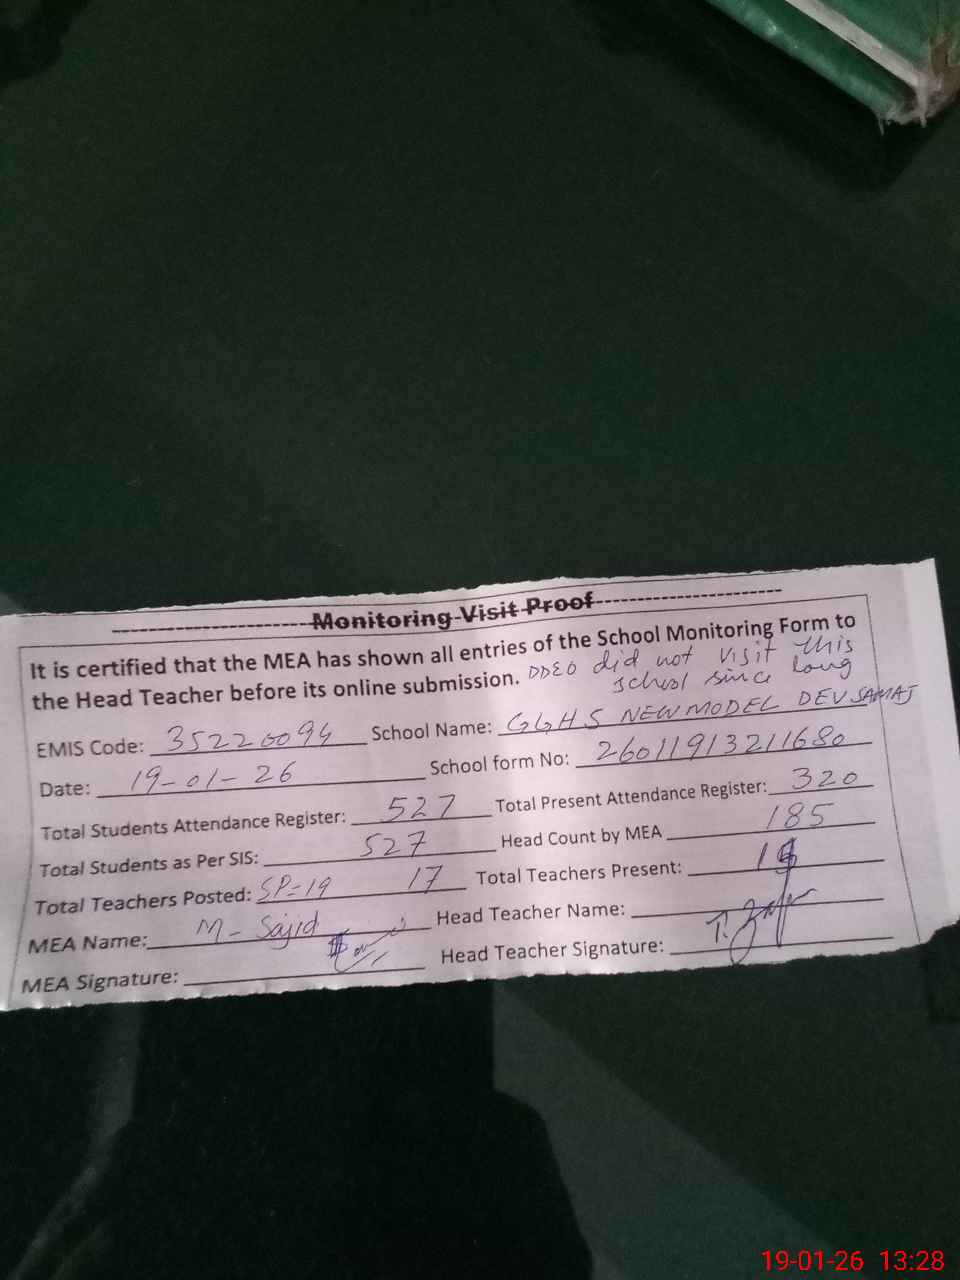 Monitoring Visit Proof
It is certified that the MEA has shown all entries of the School Monitoring Form to
the Head Teacher before its online submission. DDEO did not visit this
school since long
EMIS Code: 35220094 School Name: GGHS NEW MODEL DEV SAMAJ
Date: 19-01-26 School form No: 26011913211680
Total Students Attendance Register: 527 Total Present Attendance Register: 320
Total Students as Per SIS: 527 Head Count by MEA 185
Total Teachers Posted: SP=19 17 Total Teachers Present:
MEA Name: M- Sajid Head Teacher Name:
MEA Signature: Head Teacher Signature:
19-01-26 13:28